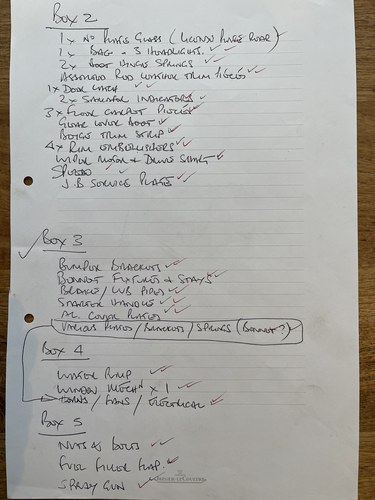 Box 2
1x No Plate Glass (Licence Plate Rear)
1x Bag - 3 Headlights.
2x Boot Hinge Springs
Assorted Rod Interior Trim Pieces
1x Door Catch
2x Semaphore Indicators
3x Floor Carpet Pieces
Gear Lever Boot
Beige Trim Strip
4x Rim Embellishers
Wiper Motor & Drive Shaft
Speedo
J.B Service Plates
Box 3
Bumper Brackets
Bonnet Fixtures & Stays
Brake/Lub Pipes
Starter Handle
AL. Cover Plates
Various Plates/Brackets/Springs (Bonnet?)
Box 4
Water Pump
Window Mechn x 1
/Fans/Electrical
Box 5
Nuts & Bolts
Fuel Filler Flap.
Spray Gun